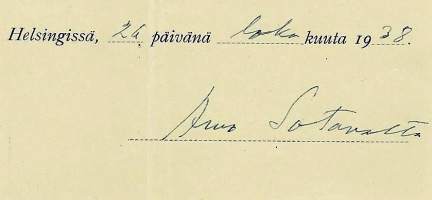 Helsingissä, 26 päivänä loka kuuta 1938.
Arvo Sotavalta